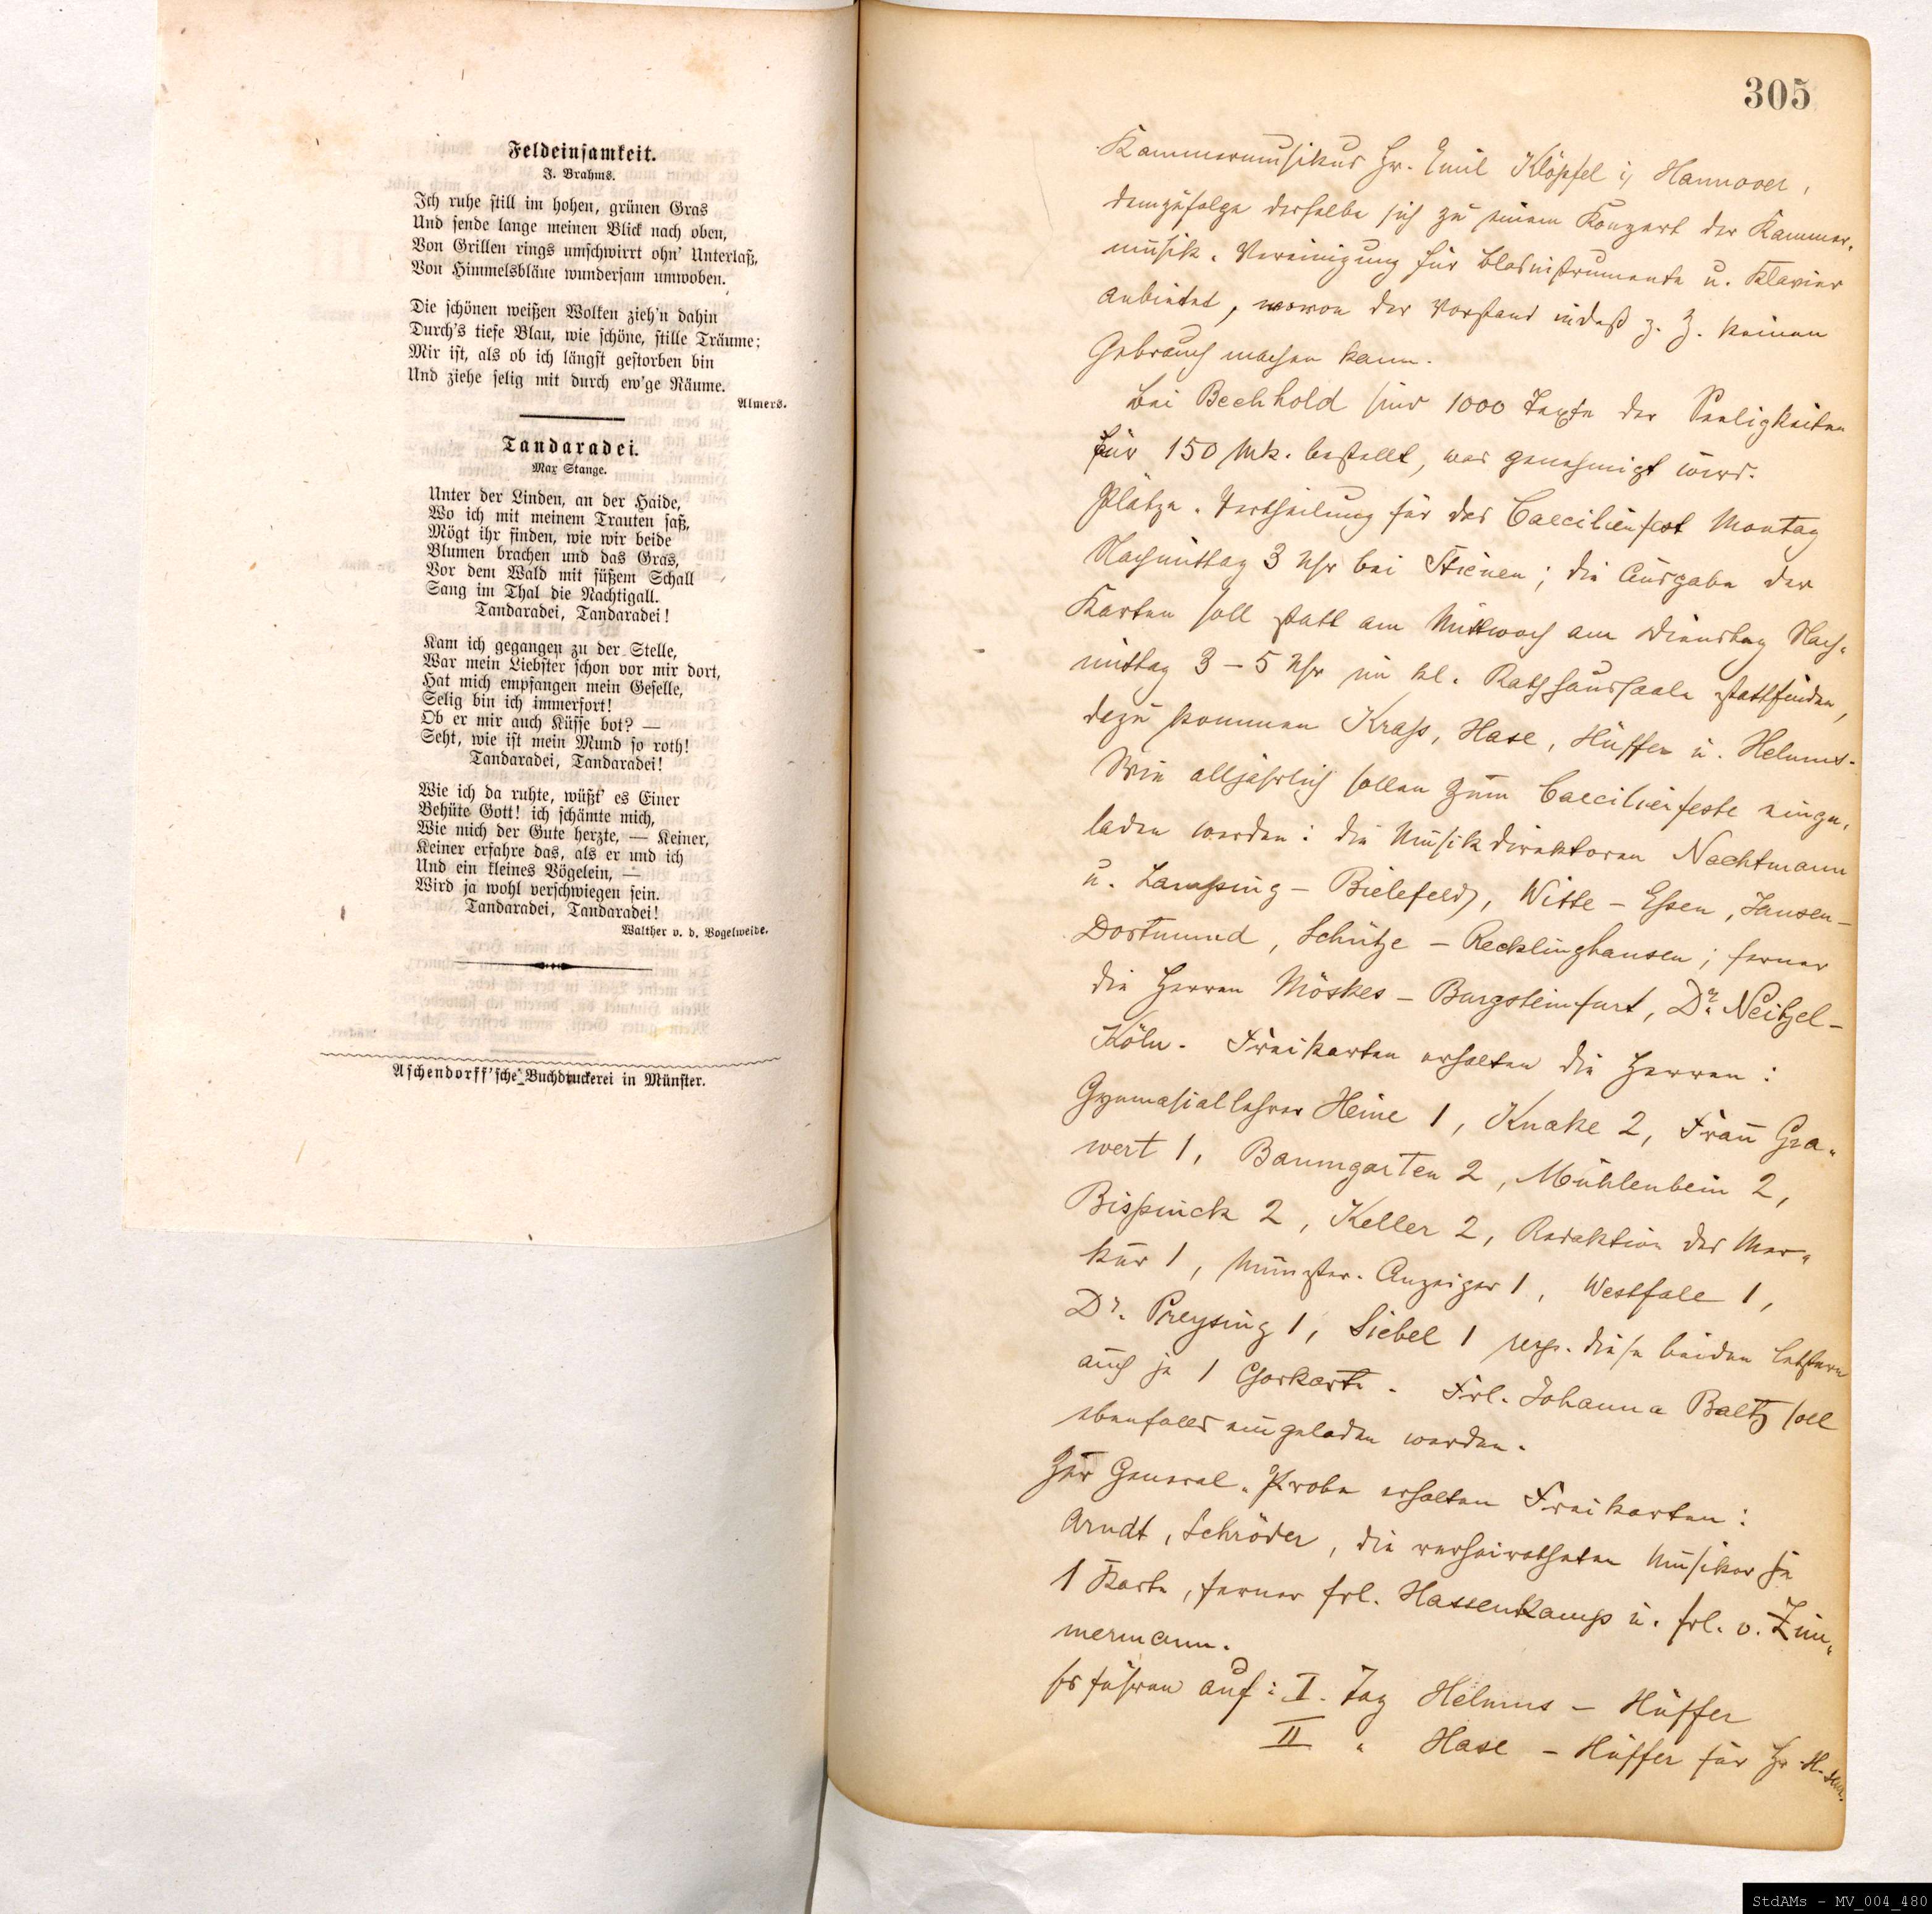 Feldeinsamkeit.
J. Brahms.
Ich ruhe still im hohen, grünen Gras
Und sende lange meinen Blick nach oben,
Von Grillen rings umschwirrt ohn' Unterlaß,
Von Himmelsbläue wundersam umwoben.
Die schönen weißen Wolken zieh'n dahin
Durch's tiefe Blau, wie schöne, stille Träume;
Mir ist, als ob ich längst gestorben bin
Und ziehe selig mit durch ew'ge Räume.
Almers.
Tandaradei.
Max Stange.
Unter der Linden, an der Haide,
Wo ich mit meinem Trauten saß,
Mögt ihr finden, wie wir beide
Blumen brachen und das Gras,
Vor dem Wald mit süßem Schall
Sang im Thal die Nachtigall.
Tandaradei, Tandaradei!
Kam ich gegangen zu der Stelle,
War mein Liebster schon vor mir dort,
Hat mich empfangen mein Geselle,
Selig bin ich immerfort!
Ob er mir auch Küsse bot? —
Seht, wie ist mein Mund so roth!
Tandaradei, Tandaradei!
Wie ich da ruhte, wüßt' es Einer
Behüte Gott! ich schämte mich,
Wie mich der Gute herzte, — Keiner,
Keiner erfahre das, als er und ich
Und ein kleines Vögelein, —
Wird ja wohl verschwiegen sein.
Tandaradei, Tandaradei!
Walther v. d. Vogelweide.
Aschendorff'sche Buchdruckerei in Münster.
305
Kammermusikus Hr. Emil Klöpfel i/ Hannover,
demzufolge derselbe sich zu einem Konzert der Kammer-
musik-Vereinigung für Blasinstrumente u. Klavier
anbietet, wovon der Vorstand indeß z. Z. keinen
Gebrauch machen kann.
Bei Bechhold sind 1000 Texte der Seeligkeiten
für 150 Mk. bestellt, was genehmigt wird.
Plätze-Vertheilung für das Caecilienfest Montag
Nachmittag 3 Uhr bei Stienen; die Ausgabe der
Karten soll statt am Mittwoch am Dienstag Nach-
mittag 3 – 5 Uhr im kl. Rathhaussaale stattfinden,
dazu kommen Krass, Hase, Hüffer u. Helmus.
Wie alljährlich sollen zum Caecilienfeste einge-
laden werden: die Musikdirektoren Nachtmann
u. Lamping – Bielefeld, Witte – Essen, Jansen –
Dortmund, Schütze – Recklinghausen; ferner
die Herren Möskes – Burgsteinfurt, Dr. Neitzel –
Köln. Freikarten erhalten die Herren:
Gymnasiallehrer Heine 1, Knake 2, Frau Gra-
wert 1, Baumgarten 2, Mühlenbein 2,
Bispinck 2, Keller 2, Redaktion des Mer-
kur 1, Münster. Anzeiger 1, Westfale 1,
Dr. Preysing 1, Siebel 1 resp. diese beiden letztern
auch je 1 Chorkarte. Frl. Johanna Baltz soll
ebenfalls eingeladen werden.
Zur General-Probe erhalten Freikarten:
Arndt, Schröder, die verheiratheten Musiker je
1 Karte, ferner Frl. Hassenkamp u. Frl. v. Zim-
mermann.
Es führen auf: I. Tag Helmus – Hüffer
II " Hase – Hüffer für Hr.
StdAMs – MV_004_480